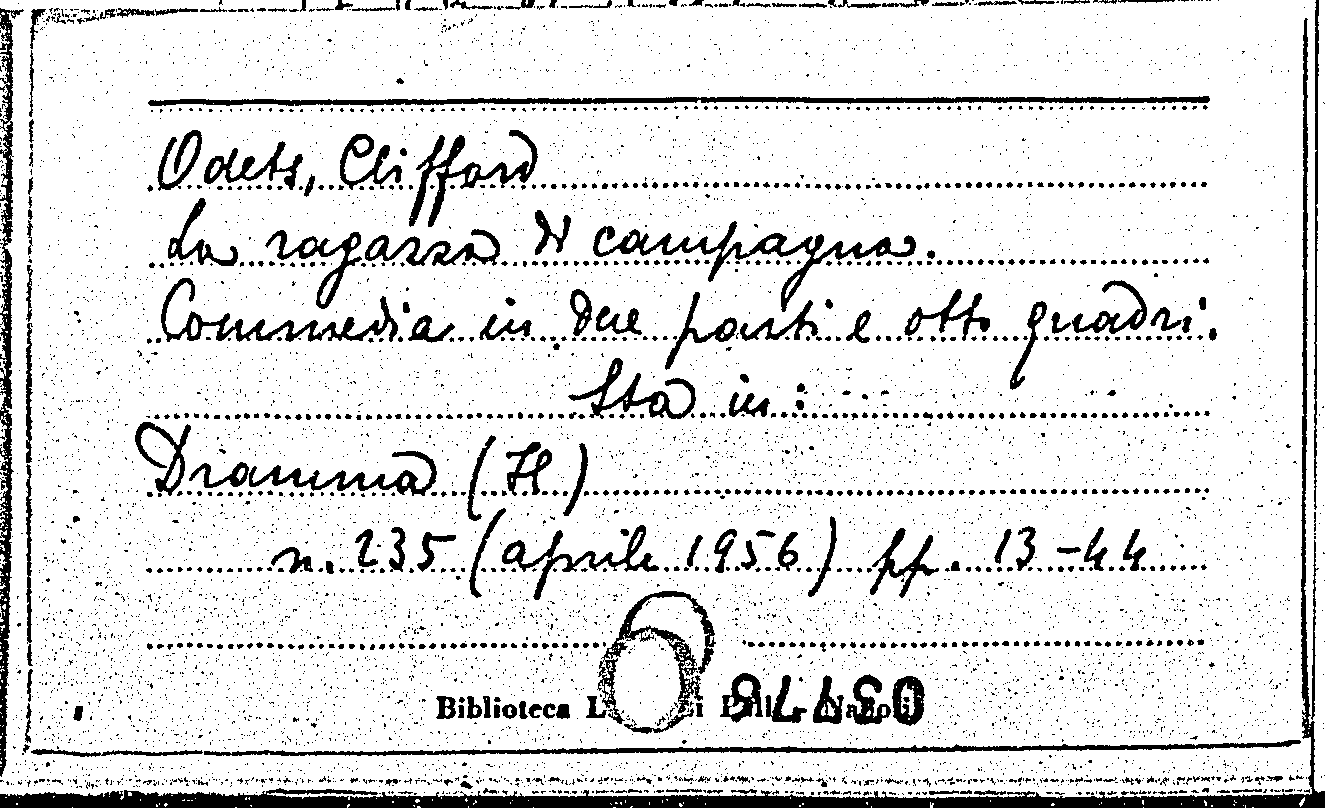 Odets, Clifford
La ragazza di campagna.
Commedia in due parti e otto quadri.
Sta in:
Dramma (Il)
n. 235 (aprile 1956) pp. 13-44
Biblioteca L i